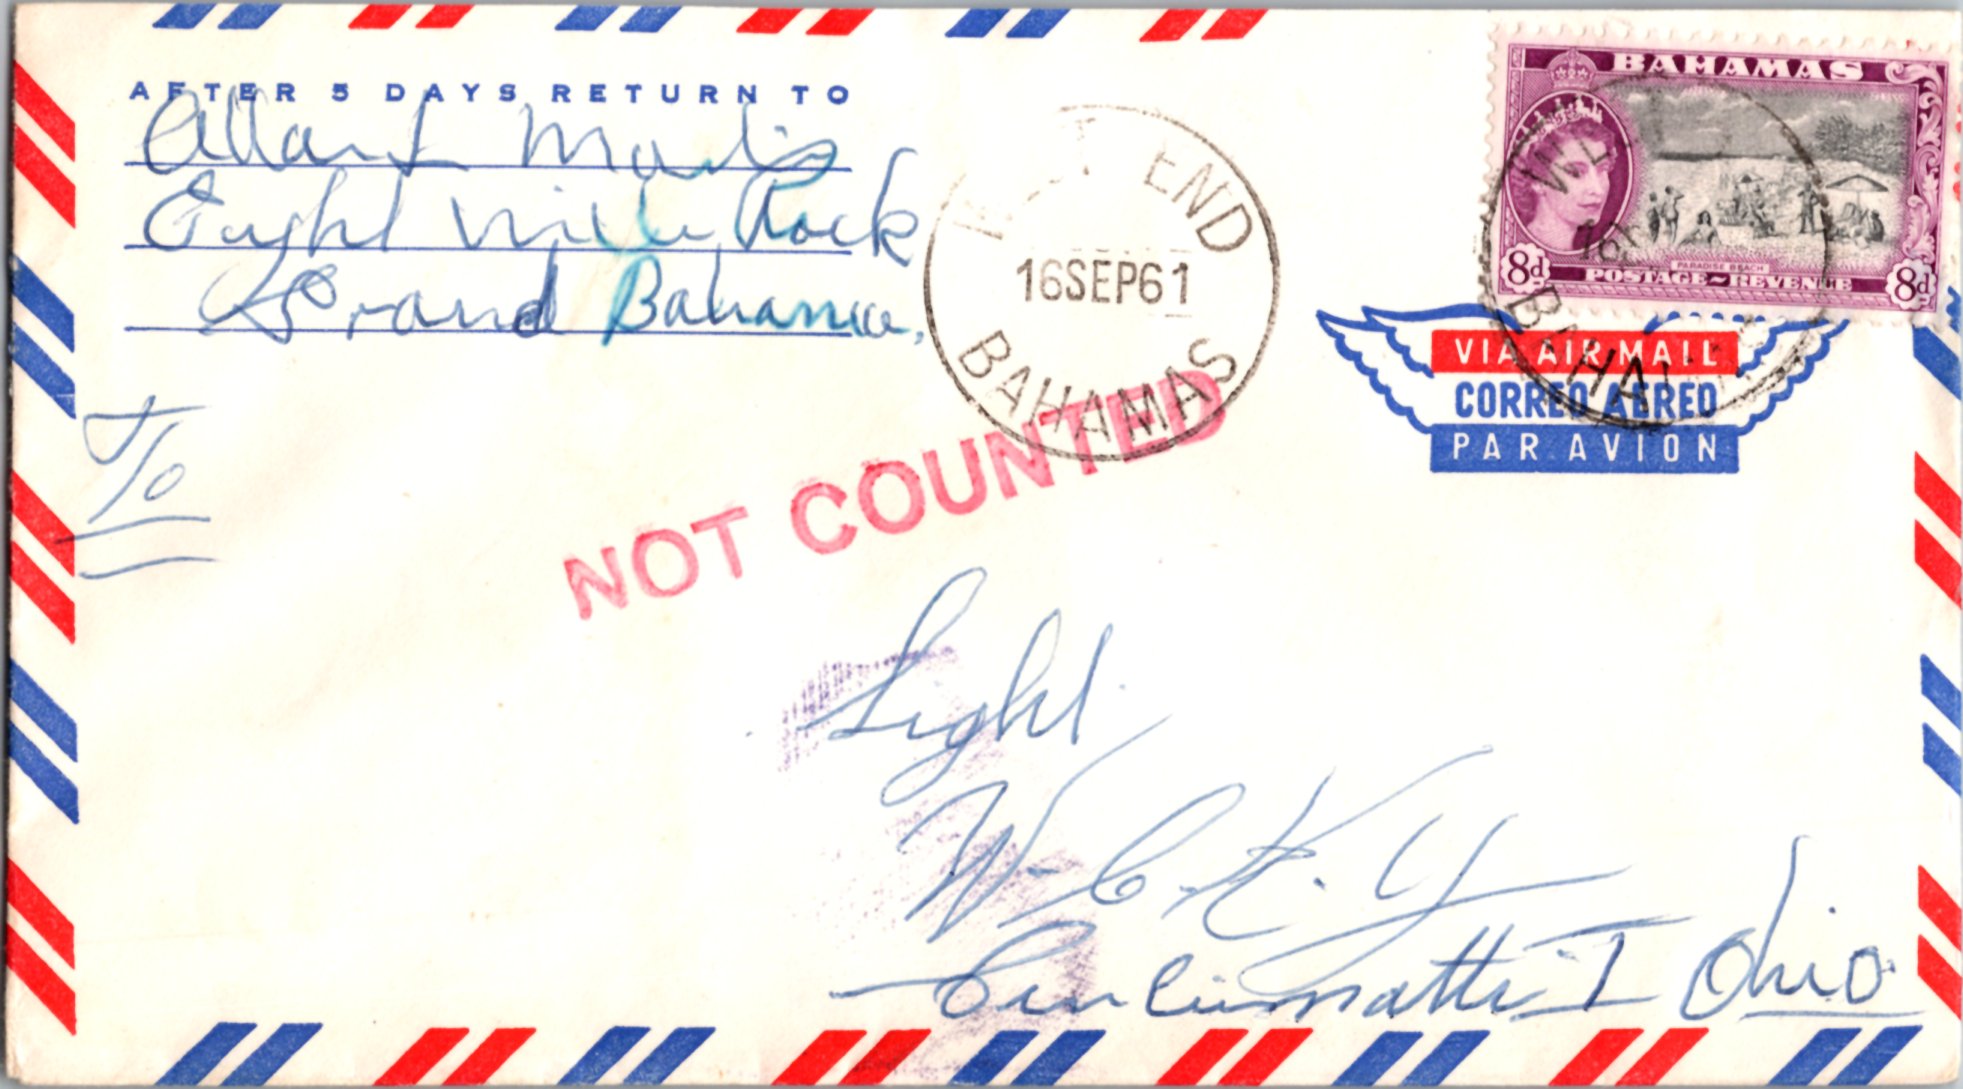 AFTER 5 DAYS RETURN TO
Allant
Eight Mile Rock
Grand Bahama.
WEST END
16SEP61
BAHAMAS
BAHAMAS
8d
PARADISE BEACH
POSTAGE~REVENUE
8d
VIA AIR MAIL
CORREO AEREO
PAR AVION
To
NOT COUNTED
Light
W.C.K.Y
Cincinnatti 1 Ohio